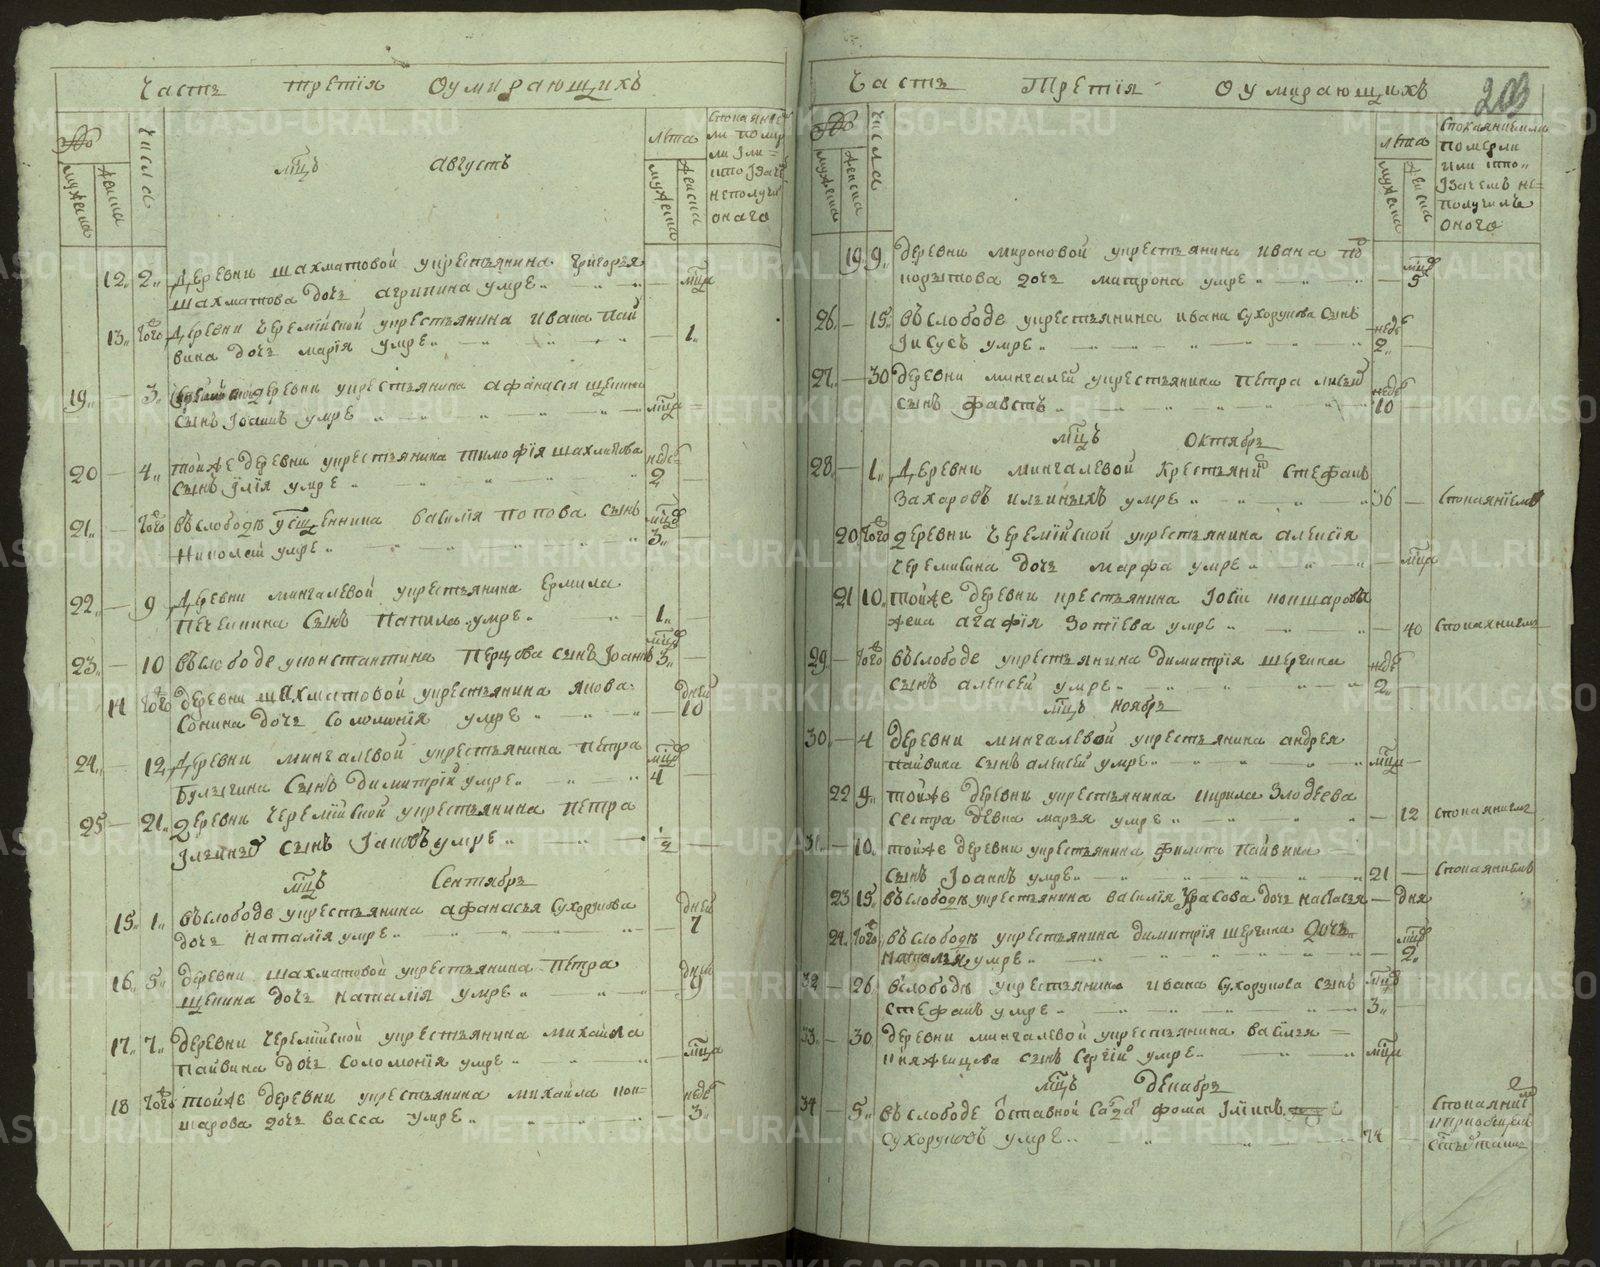 Часть третїя Оумирающихъ
№
мужеска
женска
числа
мцъ августъ
лѣта
мужеска
женска
спокаянїе
ли помер
ли или
што зачѣ
неполучи
онаго
12. 2. Деревни шахматовой укрестьянина григорья мца
шахматова дочь агрипина умре
13. того Деревни черемїйской укрестьянина ивана пай
вина дочь марїя умре 1.
19. 3. деревни укрестьянина афанасїя щепина
сынъ Іоаннъ умре мца
20 4. тойже деревни укрестьянина тимофїя шахматова неде
сынъ їлїя умре 2
21. того въ слободѣ священника василїя попова сынъ мцо
николай умре 3.
22. 9 Деревни мингалевой укрестьянина Ермила
печенкина сынъ панила умре 1.
23. 10 въ слободе уконстантина перцова сынъ Іоаннъ 3.
14 того деревни шахматовой укрестьянина якова дней
сонина дочь соломонїя умре 10
24. 12. Деревни мингалевой укрестьянина петра мцо
булыгина сынъ димитрїй умре 4
25 21. деревни черемїйской укрестьянина петра
Ільиныхъ сынъ Іаковъ умре 1/2
мцъ Сентябрь
15. 1. въ слободе укрестьянина афанасья сухорукова дней
дочь наталїя умре 7
16. 5. деревни шахматовой укрестьянина петра дней
щепина дочь наталїя умре 9
17. 7. деревни черемїйской укрестьянина михаила
пайвина дочь соломонїя умре мца
18 того тойже деревни укрестьянина михаила кок-
шарова дочь васса умре неде 3.
Часть Третїя Оумирающихъ 203
№
мужеска
женска
числа
лѣта
мужеска
женска
спокаянїемли
померли
или што
зачемъ не-
получилъ
оного
19 9. деревни мироновой укрестьянина ивана по
корытова дочь матрона умре мцо 5
26. 15. въ слободе укрестьянина ивана сухорукова сынъ неде
Іисусъ умре 2.
27. 30 деревни мингалей укрестьянина петра неде
сынъ фавстъ 10
мцъ Октябрь
28. 1. Деревни мингалевой крестьянинъ стефанъ
Захаровъ ильиныхъ умре 36 спокаянїемъ
20 того деревни черемїйской укрестьянина алексїя
черемисина дочь марфа умре мца
21 10. тойже деревни крестьянина кокшарова
жена агафїя зотїева умре 40 спокаянием
29. того въ слободе укрестьянина димитрїя шергина неде
сынъ алексей умре 2.
мцъ ноябрь
30. 4 деревни мингалевой укрестьянина андрея
пайвина сынъ алексей умре мца
22 9. тойже деревни укрестьянина кирила злодеева
сестра девка марья умре 12 спокаянием
31. 10. тойже деревни укрестьянина филипа пайвина
сынъ Іоаннъ умре 21 спокаяниемъ
23 15. въ слободѣ укрестьянина василїя урасова дочь настасья дня
24. того въ слободѣ укрестьянина димитрїя шергина дочь мцо
наталья умре 2.
32 26. вслободѣ укрестьянина ивана сухорукова сынъ мцо
стефанъ умре 3.
33. 30 деревни мингалевой укрестьянина василья
княженцова сынъ сергїй умре мца
мцъ декабрь
34 5. въ слободе отставной салда фома Ілїинъ спокаяние
сухоруковъ умре 74